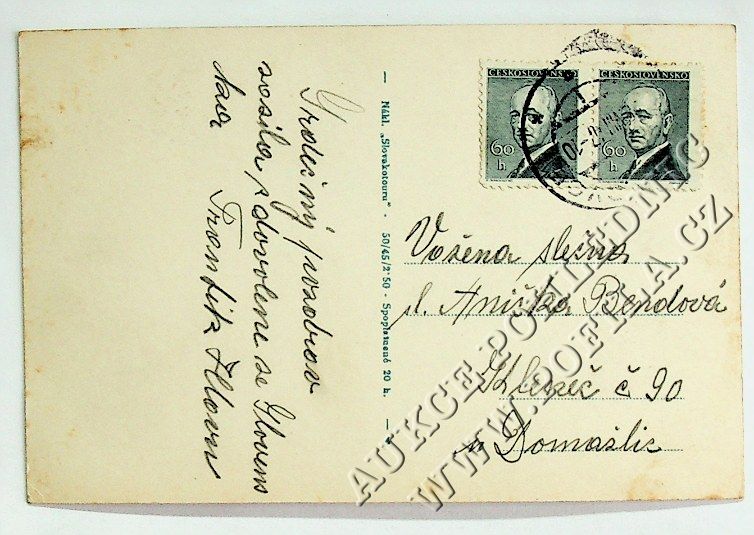 Srdečný pozdrav
posila z dovolene se Slovens
ka
František
— Nákl. „Slovakotouru" - 50/45/2˙50 - Spoplatnené 20 h. —
ČESKOSLOVENSKO
60
h
ČESKOSLOVENSKO
60
h
Vožena slečna
sl. Anička Bendová
Klenec č 90
u Domažlic
AUKCE POHLEDNIC
WWW.POFILA.CZ